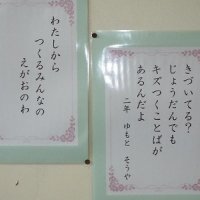 わたしから
つくるみんなの
えがおのわ
きづいてる?
じょうだんでも
キズつくことばが
あるんだよ
二年 ゆもと そうや